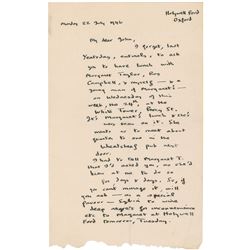 Holywell Ford
Oxford
Monday 22 July 1946
My dear John,
I forgot, last
Yesterday, entirely, to ask
you to have lunch with
Margaret Taylor, Roy
Campbell, & myself — & a
young man of Margaret's —
on Wednesday of this
week, the 24th at the
White Tower, Percy St.
It's Margaret's lunch & she's
very keen on it. She
wants us to meet about
quarter to one in the
Wheatsheaf pub next
door.
I had to tell Margaret T.
that I'd asked you, or she'd
been at me to do so
for days & days. So, if
you can't manage it, will
you — as a special
favour —
deep regrets for inconvenience
etc to Margaret at Holywell
Ford tomorrow, Tuesday.